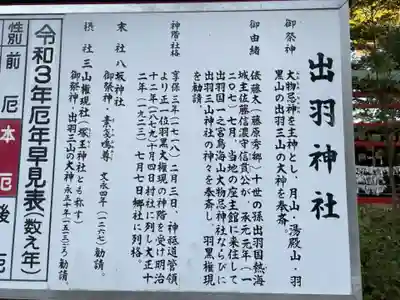 出羽神社
御祭神
大物忌神を主神とし、月山・湯殿山・羽
黒山の出羽三山の大神を奉斎。
御由緒
俵藤太（藤原秀郷）十世の孫出羽国熱海
城主佐藤信濃守信賞公が、承元元年（一
二〇七）七月、当地の座主館に来住して
出羽国一之宮鳥海山大物忌神社ならびに
出羽三山神社の神々を奉斎し、羽黒権現
を勧請。
神階社格
享保三年（一七一八）二月三日、神祇道管領
より正一位羽黒大権現の神階を受け明治
十二年（一八七九）十月四日村社に列し大正十
二年（一九二三）七月七日郷社に列格。
末社 八坂神社
御祭神・素戔嗚尊 文永四年（一二六七）勧請。
摂社 三山権現社（塚王神社とも称す）
御祭神・出羽三山の大神 永正十年（一五一三）勧請。
令和3年厄年早見表（数え年）
性別
前厄
本厄
後厄